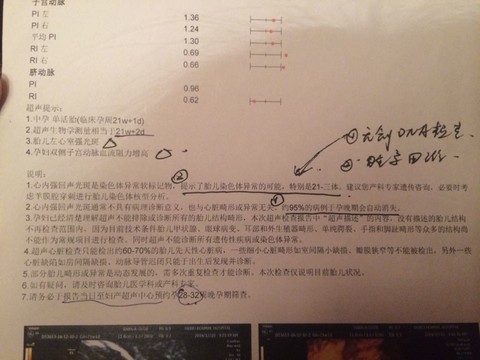 子宫动脉
PI 左 1.36
PI 右 1.24
平均 PI 1.30
RI 左 0.69
RI 右 0.66
脐动脉
PI 0.96
RI 0.62
超声提示:
1.中孕 单活胎(临床孕周21w+1d)
2.超声生物学测量相当于21w+2d
3.胎儿左心室强光斑
4.孕妇双侧子宫动脉血流阻力增高
①无创DNA检查
②
说明:
1.心内强回声光斑是染色体异常软标记物,提示了胎儿染色体异常的可能,特别是21-三体。建议您产科专家遗传咨询,必要时考
虑羊膜腔穿刺进行胎儿染色体核型分析。
2.心内强回声光斑通常不具有病理诊断意义,也与心脏畸形或异常无关,约95%的病例于孕晚期会自动消失。
3.孕妇已经清楚理解超声不能排除或诊断所有的胎儿结构畸形,本次超声检查报告中"超声描述"的内容,没有描述的胎儿结构
不再检查范围内,因为目前技术条件胎儿甲状腺、肛球病变、耳部和外生殖器畸形、单纯腭裂、手指和脚趾畸形等众多的结构尚
不能作为常规项目进行检查。同时超声不能诊断所有遗传性疾病或染色体异常。
4.超声心脏检查只能检出约60-70%的胎儿先天性心脏病,一些细小心脏畸形如室间隔小缺损、瓣膜狭窄等不能被检出,另外一些
心脏缺陷如房间隔缺损、动脉导管迟闭只能于出生后发现并诊断。
5.部分胎儿畸形或异常是动态发展的,需多次重复检查才能诊断。本次检查仅说明目前胎儿状况。
6.如有疑问,请及时咨询胎儿医学科或产科专家。
7.请务必于报告当日至妇产超声中心预约孕28-32周晚孕期筛查。